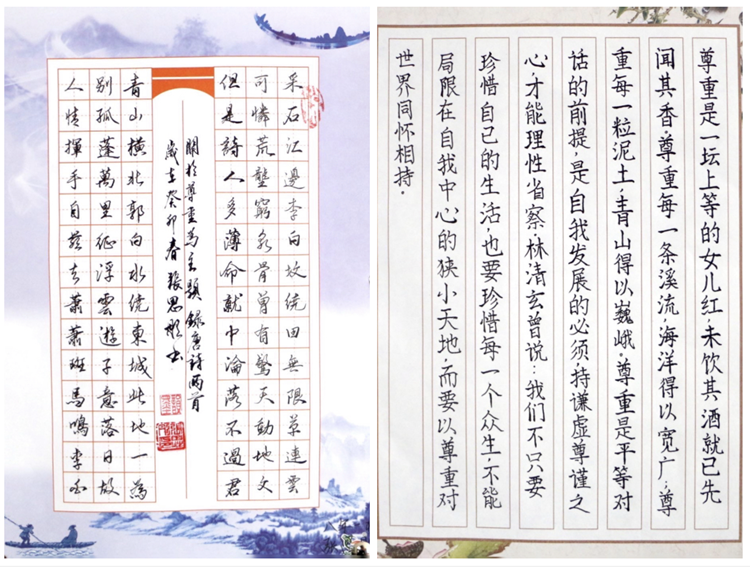 采石江邊李白坟繞田無限草連雲
可憐荒壟窮泉骨曾有驚天動地文
但是詩人多薄命就中淪落不過君
關於尊重爲主題錄唐詩兩首
歲在癸卯春張思彤書
青山橫北郭白水繞東城此地一爲
別孤蓬萬里征浮雲遊子意落日故
人情揮手自茲去蕭蕭班馬鳴李白
尊重是一坛上等的女儿红,未饮其酒就已先
闻其香,尊重每一条溪流,海洋得以宽广;尊
重每一粒泥土,青山得以巍峨,尊重是平等对
话的前提,是自我发展的必须,持谦虚尊谨之
心才能理性省察.林清玄曾说:我们不只要
珍惜自己的生活,也要珍惜每一个众生,不能
局限在自我中心的狭小天地,而要以尊重对
世界同怀相持.